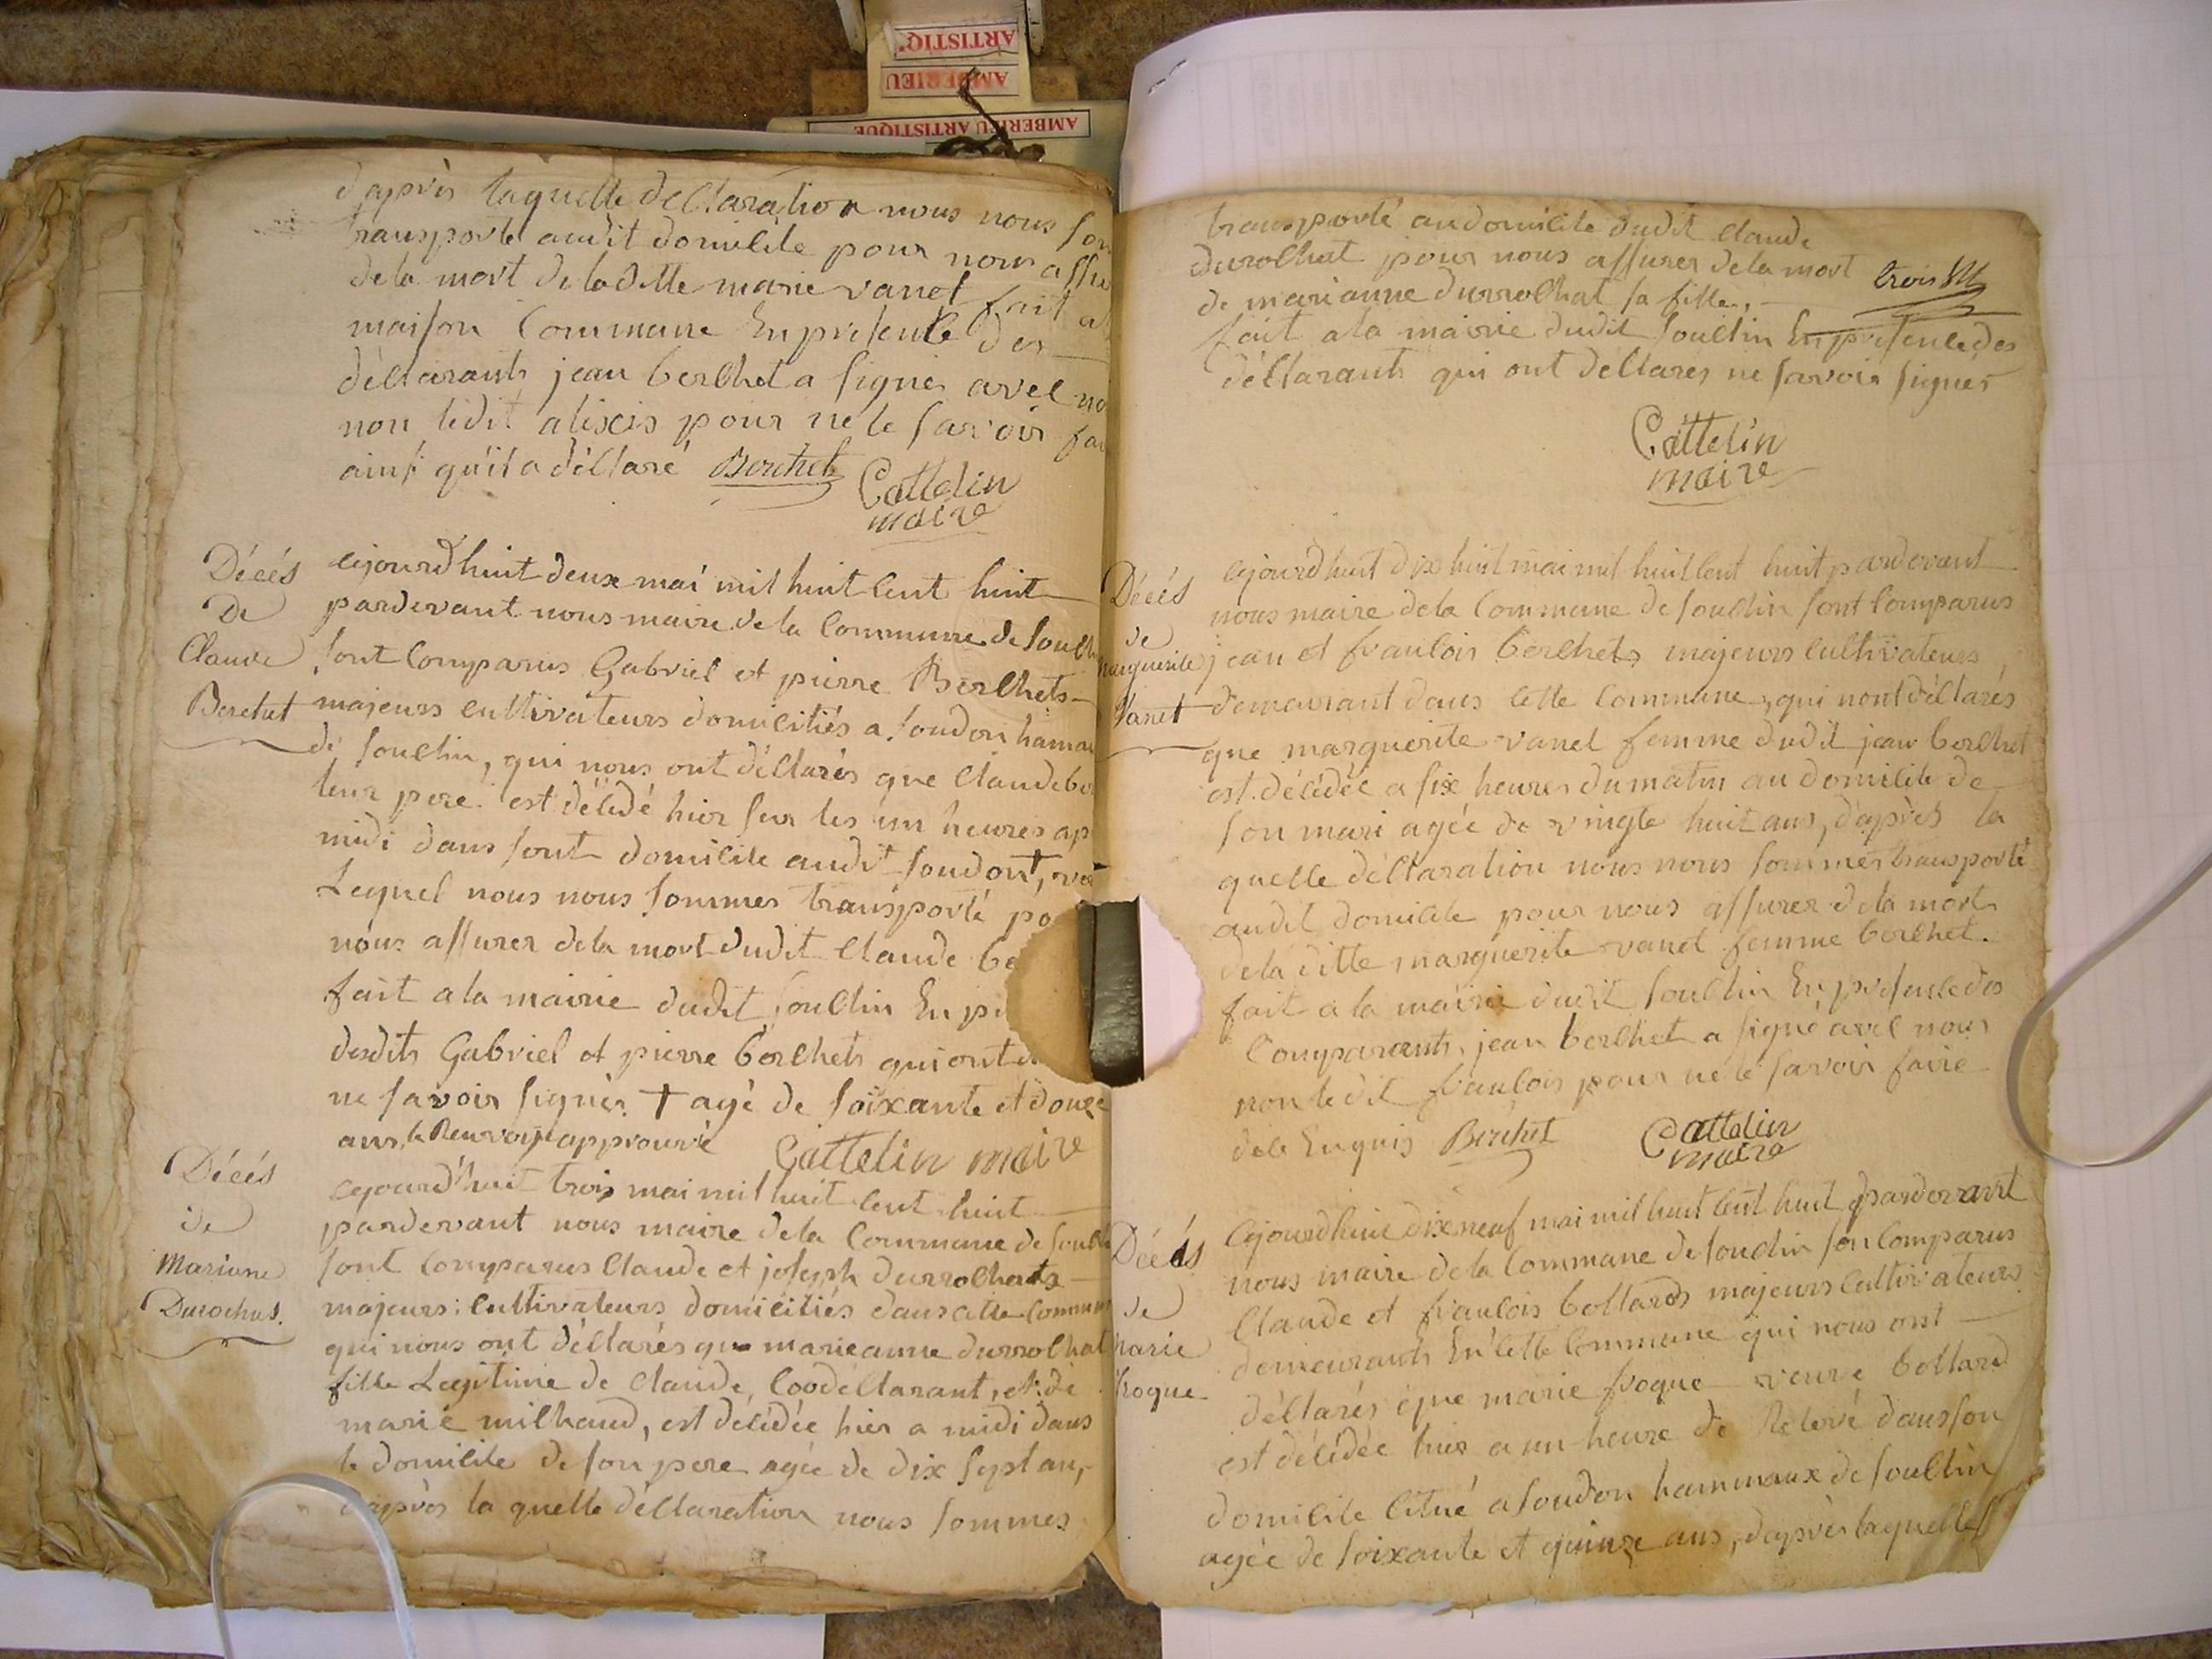 ARTISTIQ'
AMBERIEU
AMBERIEU ARTISTIQUE
d'après laquelle declaration nous nous som
transporté audit domicile pour nous assu
de la mort de la ditte marie vanel fait a
maison Commune En presence des
déclarants jean berchet a signer avec no
non ledit alexis pour ne le savoir fai
ainsi qu'il a déclaré Berchet Cattelin
maire
Décés
De
Claude
Berchet
cejourd'huit deux mai mil huit cent huit
pardevant nous maire de la Commune de souclin
sont Comparus Gabriel et pierre Berchets
majeurs cultivateurs domiciliés a soudon hamau
de souclin, qui nous ont déclarés que Claude ber
leur pere est décédé hier sur les un heures ap
midi dans sont domicile audit soudont,
Lequel nous nous sommes transporté po
nous assurer de la mort dudit Claude be
fait a la mairie dudit souclin En pr
desdits Gabriel et pierre berchets qui ont d
ne savoir signer. + agé de soixante et douze
ans, le Renvoy approuvé Cattelin maire
Décés
de
Mariane
Durochas.
cejourd'huit trois mai mil huit cent huit
pardevant nous maire de la Commune de soucl
sont Comparus Claude et joseph durrochats
majeurs cultivateurs domiciliés dans cette commune
qui nous ont déclarés que marieanne durrochat
fille Legitime de Claude, Coodeclarant, et de
marie milhaud, est décédée hier a midi dans
le domicile de son pere agée de dix sept ans,
d'après la quelle déclaration nous sommes
transporté au domicile dudit Claude
durochat pour nous assurer de la mort
de marianne durrochat sa fille,
fait a la mairie dudit souclin En presence des
déclarants qui ont declares ne savoir signer
Cattelin
maire
Décés
de
marguerite
Vanet
cejourd'huit dix huit mai mil huit cent huit pardevant
nous maire de la Commune de souclin sont Comparus
jean et francois berchets majeurs cultivateurs,
demeurant dans cette Commune, qui nont déclarés
que marguerite vanel femme dudit jean berchet
est décédée a six heures du matin au domicile de
son mari agée de vingte huit ans, d'après la
quelle déclaration nous nous sommes transporté
audit domicile pour nous assurer de la mort
de la ditte marguerite vanel femme berchet.
fait a la mairie dudit souclin En presence des
Comparants, jean berchet a signé avec nous
non ledit francois pour ne le savoir faire
de ce Enquis Berchet Cattelin
maire
Décés
de
marie
froque
Cejourd'huit dix neuf mai mil huit cent huit pardevant
nous maire de la Commane de souclin son Comparus
Claude et francois bottards majeurs Cultivateurs
demeurants En cette Commune qui nous ont
déclarés que marie froque veuve bottard
est décédée hier a un heure de Relevé dans son
domicile citué a soudon hammaux de souclin
agée de soixante et quinze ans, d'après laquelle